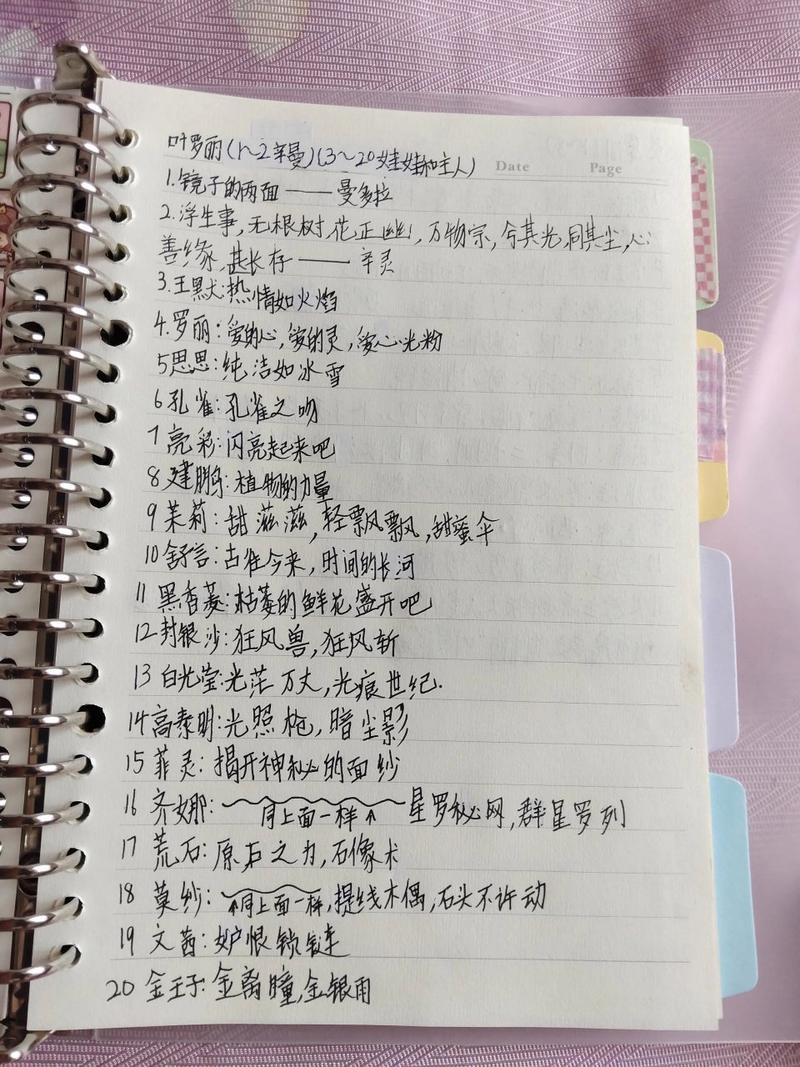 Date Page
叶罗丽(1~2辛曼)(3~20娃娃和主人)
1.镜子的两面——曼多拉
2.浮生事,无根树,花正幽,万物宗,兮其光,同其尘,心
善缘,甚长存——辛灵
3.王默:热情如火焰
4.罗丽:爱的心,爱的灵,爱心光粉
5思思:纯洁如冰雪
6孔雀:孔雀之吻
7亮彩:闪亮起来吧
8建鹏:植物的力量
9茉莉:甜滋滋,轻飘飘,甜蜜伞
10舒言:古往今来,时间的长河
11黑香菱:枯萎的鲜花盛开吧
12封银沙:狂风兽,狂风斩
13白光莹:光茫万丈,光痕世纪.
14高泰明:光照枪,暗尘影
15菲灵:揭开神秘的面纱
16齐娜:同上面一样↑星罗秘网,群星罗列
17荒石:原石之力,石像术
18莫纱:↑同上面一样,提线木偶,石头不许动
19文茜:妒恨锁链
20金王子:金离瞳,金银雨